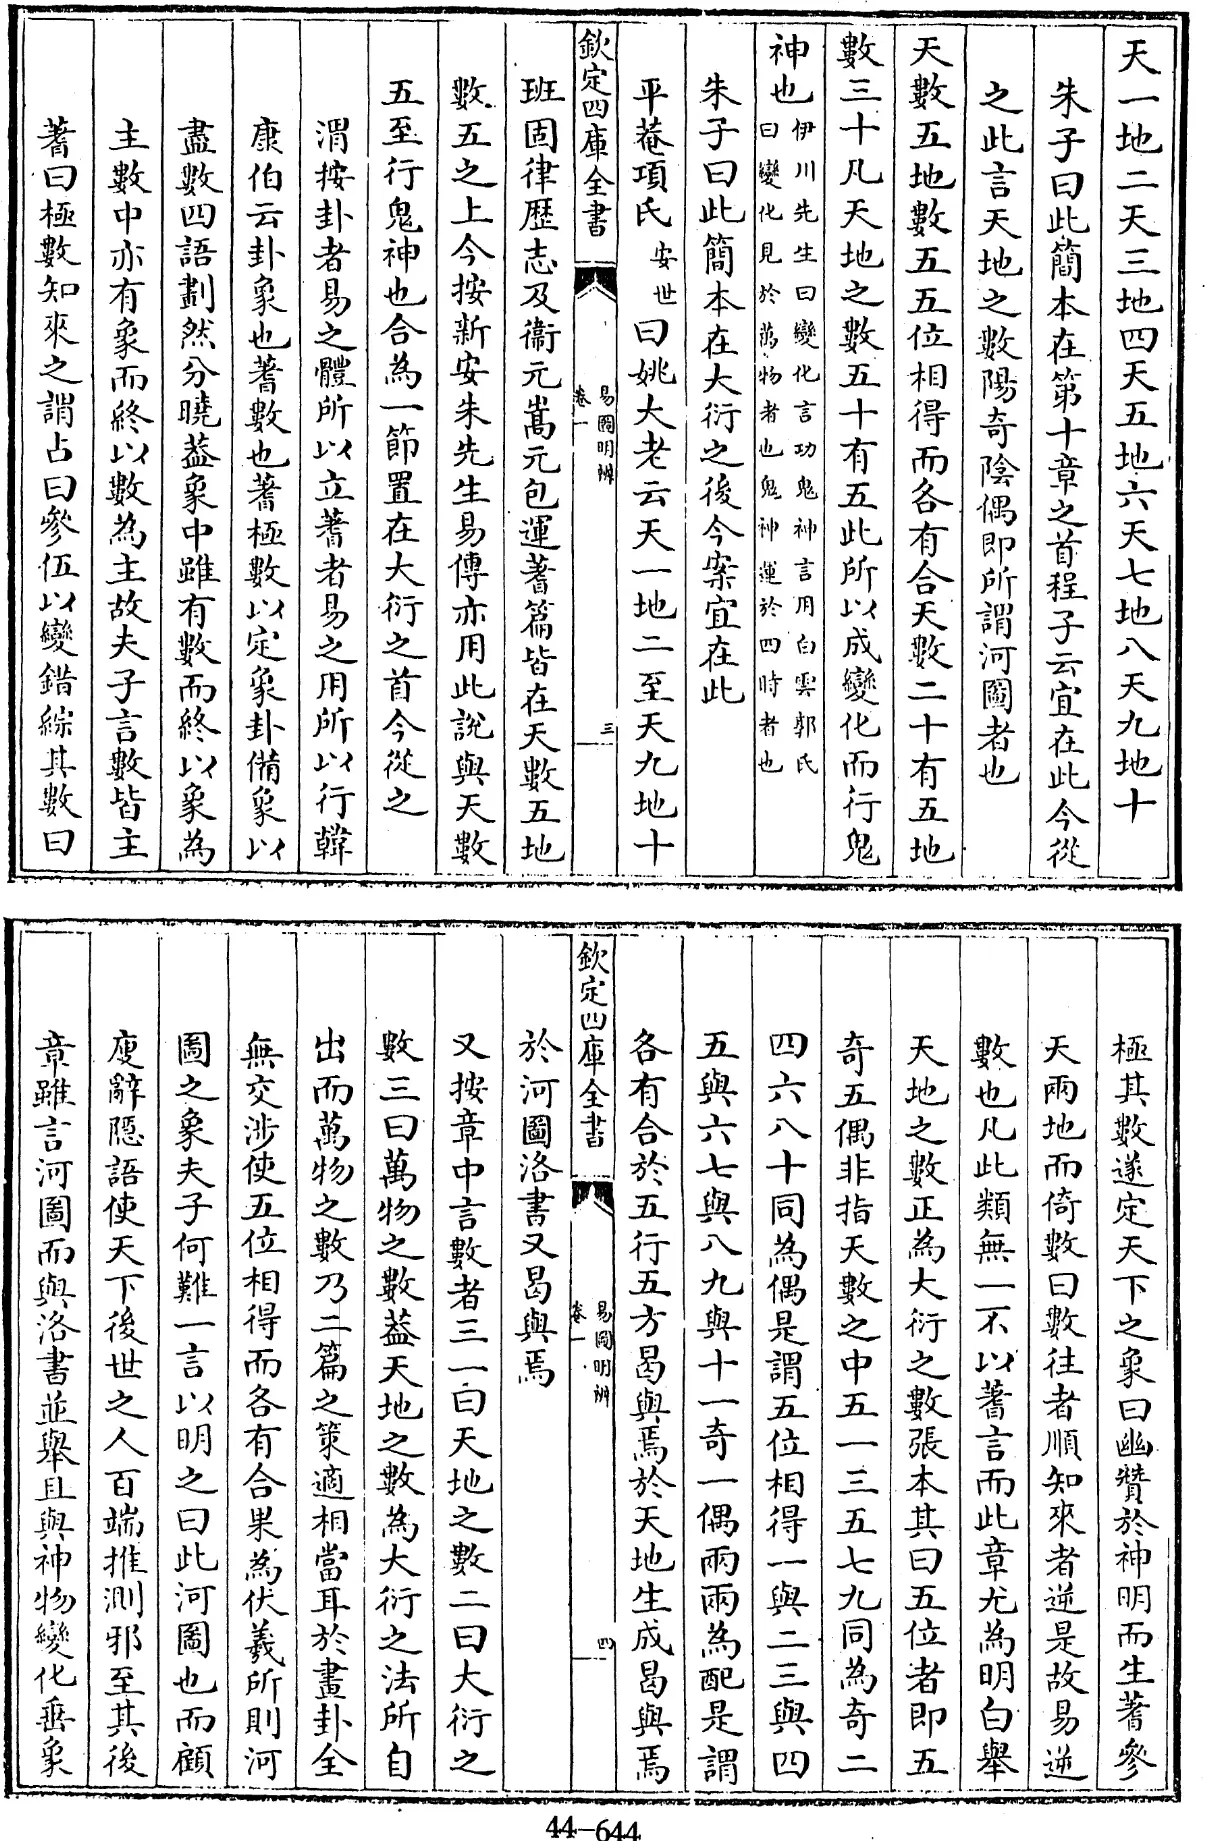 天一地二天三地四天五地六天七地八天九地十
朱子曰此簡本在第十章之首程子云宜在此今從
之此言天地之數陽奇陰偶即所謂河圖者也
天數五地數五五位相得而各有合天數二十有五地
數三十凡天地之數五十有五此所以成變化而行鬼
神也伊川先生曰變化言功鬼神言用白雲郭氏
曰變化見於萬物者也鬼神運於四時者也
朱子曰此簡本在大衍之後今案宜在此
平菴項氏安世曰姚大老云天一地二至天九地十
欽定四庫全書
易圖明辨
卷一
三
班固律歷志及衞元嵩元包運蓍篇皆在天數五地
數五之上今按新安朱先生易傳亦用此說與天數
五至行鬼神也合為一節置在大衍之首今從之
渭按卦者易之體所以立蓍者易之用所以行韓
康伯云卦象也蓍數也蓍極數以定象卦備象以
盡數四語劃然分曉葢象中雖有數而終以象為
主數中亦有象而終以數為主故夫子言數皆主
蓍曰極數知來之謂占曰參伍以變錯綜其數曰
極其數遂定天下之象曰幽贊於神明而生蓍參
天兩地而倚數曰數往者順知來者逆是故易逆
數也凡此類無一不以蓍言而此章尤為明白舉
天地之數正為大衍之數張本其曰五位者即五
奇五偶非指天數之中五一三五七九同為奇二
四六八十同為偶是謂五位相得一與二三與四
五與六七與八九與十一奇一偶兩兩為配是謂
各有合於五行五方曷與焉於天地生成曷與焉
欽定四庫全書
易圖明辨
卷一
四
於河圖洛書又曷與焉
又按章中言數者三一曰天地之數二曰大衍之
數三曰萬物之數葢天地之數為大衍之法所自
出而萬物之數乃二篇之策適相當耳於畫卦全
無交涉使五位相得而各有合果為伏羲所則河
圖之象夫子何難一言以明之曰此河圖也而顧
廋辭隱語使天下後世之人百端推測邪至其後
章雖言河圖而與洛書並舉且與神物變化垂象
44-644